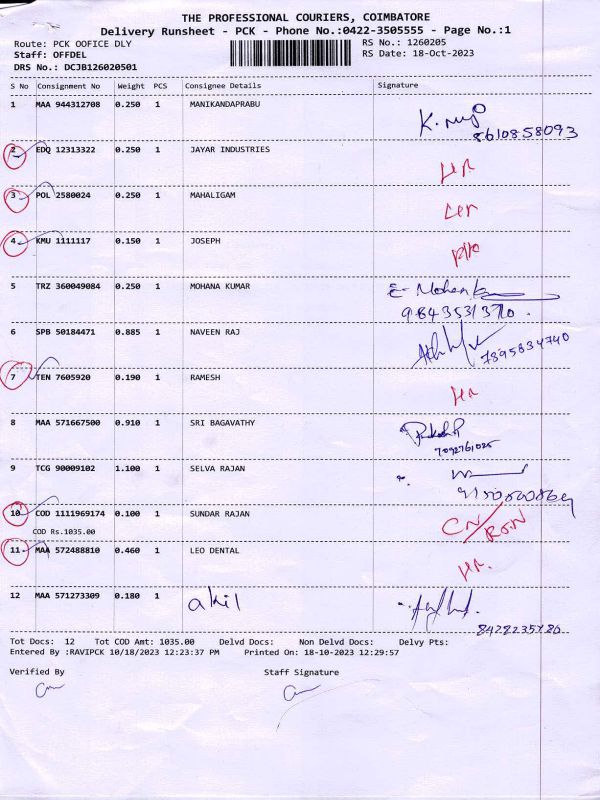 THE PROFESSIONAL COURIERS, COIMBATORE
Delivery Runsheet - PCK - Phone No.:0422-3505555 - Page No.:1
Route: PCK OOFICE DLY RS No.: 1260205
Staff: OFFDEL RS Date: 18-Oct-2023
DRS No.: DCJB126020501
S No Consignment No Weight PCS Consignee Details Signature
1 MAA 944312708 0.250 1 MANIKANDAPRABU
8610858093
2 EDQ 12313322 0.250 1 JAYAR INDUSTRIES
3 POL 2580024 0.250 1 MAHALIGAM
4 KMU 1111117 0.150 1 JOSEPH
5 TRZ 360049084 0.250 1 MOHANA KUMAR
9843531370.
6 SPB 50184471 0.885 1 NAVEEN RAJ
7895834740
7 TEN 7605920 0.190 1 RAMESH
8 MAA 571667500 0.910 1 SRI BAGAVATHY
7092761025
9 TCG 90009102 1.100 1 SELVA RAJAN
10 COD 1111969174 0.100 1 SUNDAR RAJAN
COD Rs.1035.00
11 MAA 572488810 0.460 1 LEO DENTAL
12 MAA 571273309 0.180 1 akil
8428235786
Tot Docs: 12 Tot COD Amt: 1035.00 Delvd Docs: Non Delvd Docs: Delvy Pts:
Entered By :RAVIPCK 10/18/2023 12:23:37 PM Printed On: 18-10-2023 12:29:57
Verified By Staff Signature